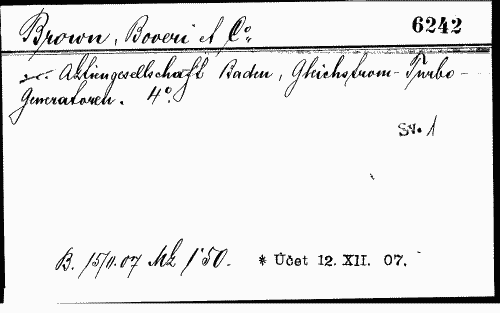 Brown, Boveri et Co. 6242
Aktiengesellschaft Baden, Gleichstrom-Turbo-
Generatoren. 4°.
Sv. 1
B. 15/11.07 Mk 1·50. * Účet 12. XII. 07.